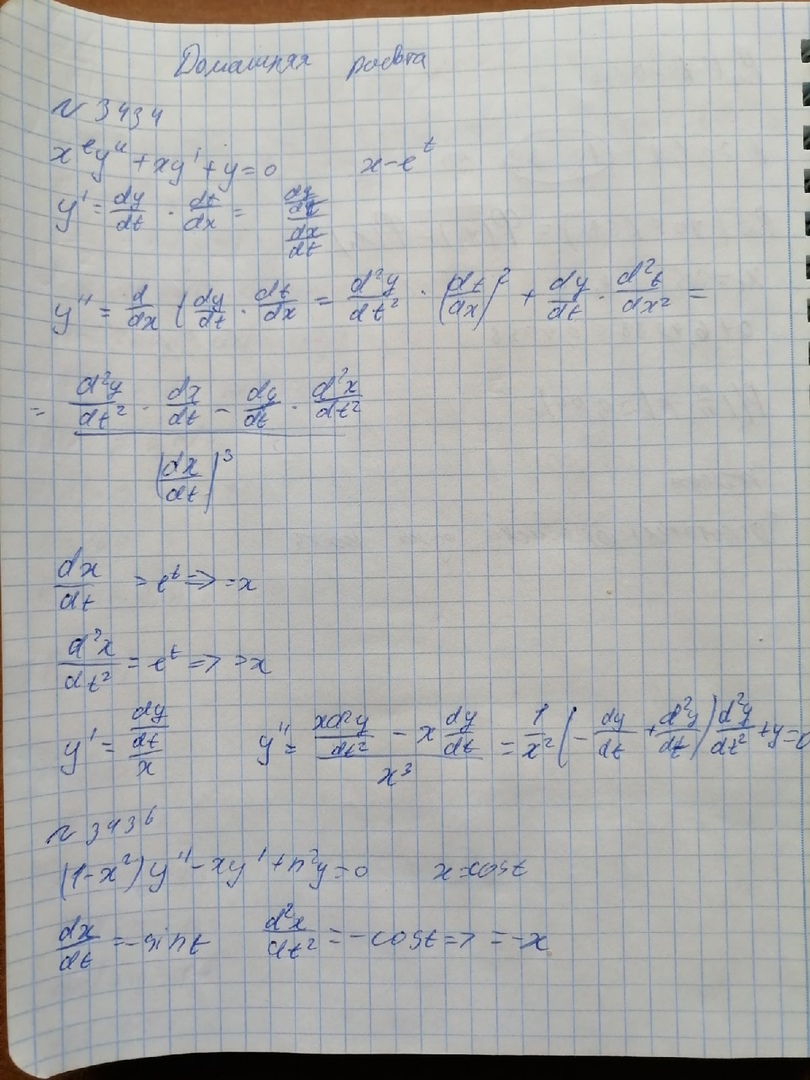 Домашняя работа
№3434
x²y'' + xy' + y = 0      x = e^t
y' = dy/dt · dt/dx = (dy/dt)/(dx/dt)
y'' = d/dx (dy/dt · dt/dx = d²y/dt² · (dt/dx)² + dy/dt · d²t/dx² =
= (d²y/dt² · dx/dt - dy/dt · d²x/dt²)/(dx/dt)³
dx/dt = e^t => = x
d²x/dt² = e^t => = x
y' = (dy/dt)/x      y'' = (xd²y/dt² - x dy/dt)/x³ = 1/x² (-dy/dt + d²y/dt) d²y/dt² + y = 0
№3436
(1-x²)y'' - xy' + n²y = 0      x = cost
dx/dt = -sint      d²x/dt² = -cost => = -x